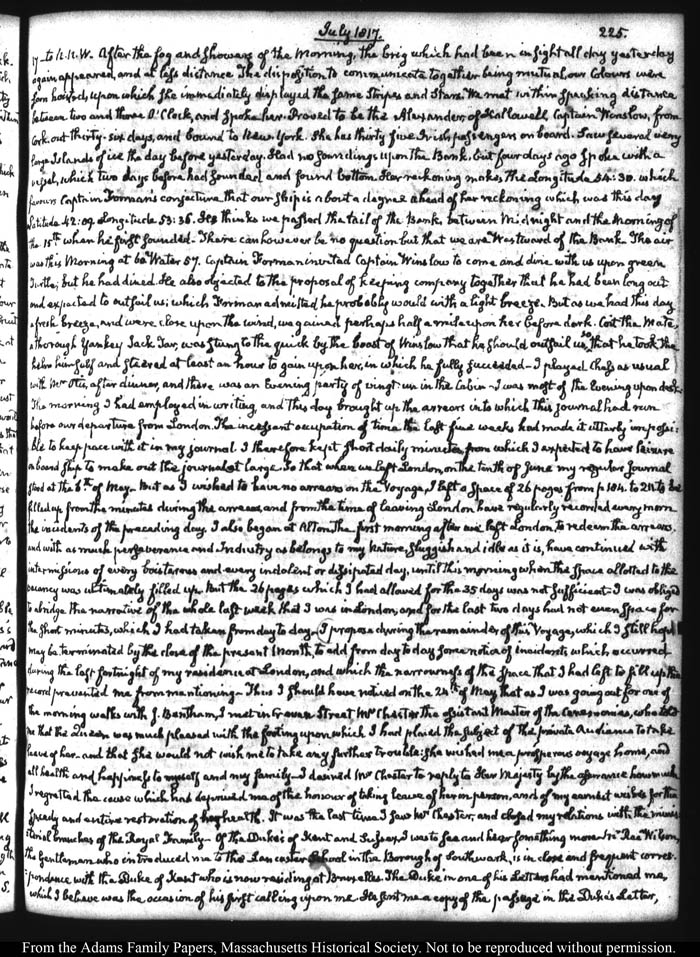 July 1817.
225.
17 – to N.N.W. After the fog and showers of the Morning, the brig which had been in sight all day yesterday
again appeared, and at less distance The disposition to communicate together being mutual, our Colours were
soon hoisted, upon which she immediately displayed the same Stripes and Stars. We met within speaking distance
between two and three O'Clock, and spoke her. Proved to be the Alexander of Hallowell, Captain Winslow, from
Cork, out thirty-six days, and bound to New-York. She has thirty five Irish passengers on board. Saw several very
large Islands of ice the day before yesterday. Had no soundings upon the Bank, but four days ago spoke with a
vessel, which two days before had sounded and found bottom. Her reckoning makes the Longitude 54:30. which
favours Captain Forman's conjecture that our ship is about a degree ahead of her reckoning which was this day
Latitude 42:09. Longitude 53:36. He thinks we passed the tail of the Bank, between Midnight and the morning of
the 15th when he first sounded. There can however be no question but that we are Westward of the Bank. The air
was this Morning at 60 Water 57. Captain Forman invited Captain Winslow to come and dine with us upon green
Turtle; but he had dined. He also objected to the proposal of keeping company together that he had been long out
and expected to outsail us; which Forman admitted he probably would with a light breeze. But as we had this day
a fresh breeze, and were close upon the wind, we gained perhaps half a mile upon her before dark. Coit the Mate,
a thorough Yankey Jack Tar, was stung to the quick by the boast of Winslow that he should outsail us, so that he took the
helm himself and steered at least an hour to gain upon her, in which he fully succeeded – I played Chess as usual
with Mr Otis, after dinner, and there was an Evening party of vingt-un in the Cabin – I was most of the Evening upon deck.
The morning I had employed in writing, and this day brought up the arrears into which this Journal had run
before our departure from London. The incessant occupation of time the last five weeks had made it utterly impossi-
ble to keep pace with it in my journal. I therefore kept short daily minutes, from which I expected to have leisure
on board ship to make out the journal at large. So that when we left London, on the tenth of June my regular journal
stood at the 6th of May. But as I wished to have no arrears on the Voyage, I left a space of 26 pages from p 184. to 210 to be
filled up from the minutes during the arrears, and from the time of leaving London have regularly recorded every morn
the incidents of the preceding day. I also began at Alton, the first morning after we left London, to redeem the arrears,
and with as much perseverance and Industry as belongs to my Nature, sluggish and idle as it is, have continued with
intermissions of every boisterous and every indolent or dissipated day, until this morning when the space allotted to the
vacancy was ultimately filled up. But the 26 pages which I had allowed for the 35 days was not sufficient – I was obliged
to abridge the narrative of the whole last week that I was in London, and for the last two days had not even space for
the short minutes, which I had taken from day to day – I propose during the remainder of this Voyage, which I still hope
may be terminated by the close of the present Month, to add from day to day some notice of incidents, which occurred
during the last fortnight of my residence at London, and which the narrowness of the space that I had left to fill up the
record prevented me from mentioning – Thus I should have noticed on the 24th of May that as I was going out for one of
the morning walks with J. Bentham, I met in Craven Street Mr Chester the assistant Master of the Ceremonies, who told
me that the Queen was much pleased with the footing upon which I had placed the subject of the private Audience to take
leave of her – and that she would not wish me to take any further trouble: she wished me a prosperous voyage home, and
all health and happiness to myself and my family – I desired Mr Chester to reply to Her Majesty by the assurance how much
I regretted the cause which had deprived me of the honour of taking leave of her in person, and of my earnest wishes for the
speedy and entire restoration of her health. It was the last time I saw Mr Chester, and closed my relations with the minis-
terial branches of the Royal Family – Of the Dukes of Kent and Sussex, I was to see and hear something more. Mr Rae Wilson,
the Gentleman who introduced me to the Lancaster School in the Borough of Southwark, is in close and frequent corres-
pondence with the Duke of Kent who is now residing at Brussels. The Duke in one of his Letters had mentioned me,
which I believe was the occasion of his first calling upon me. He sent me a copy of the passage in the Duke's Letter,
From the Adams Family Papers, Massachusetts Historical Society. Not to be reproduced without permission.